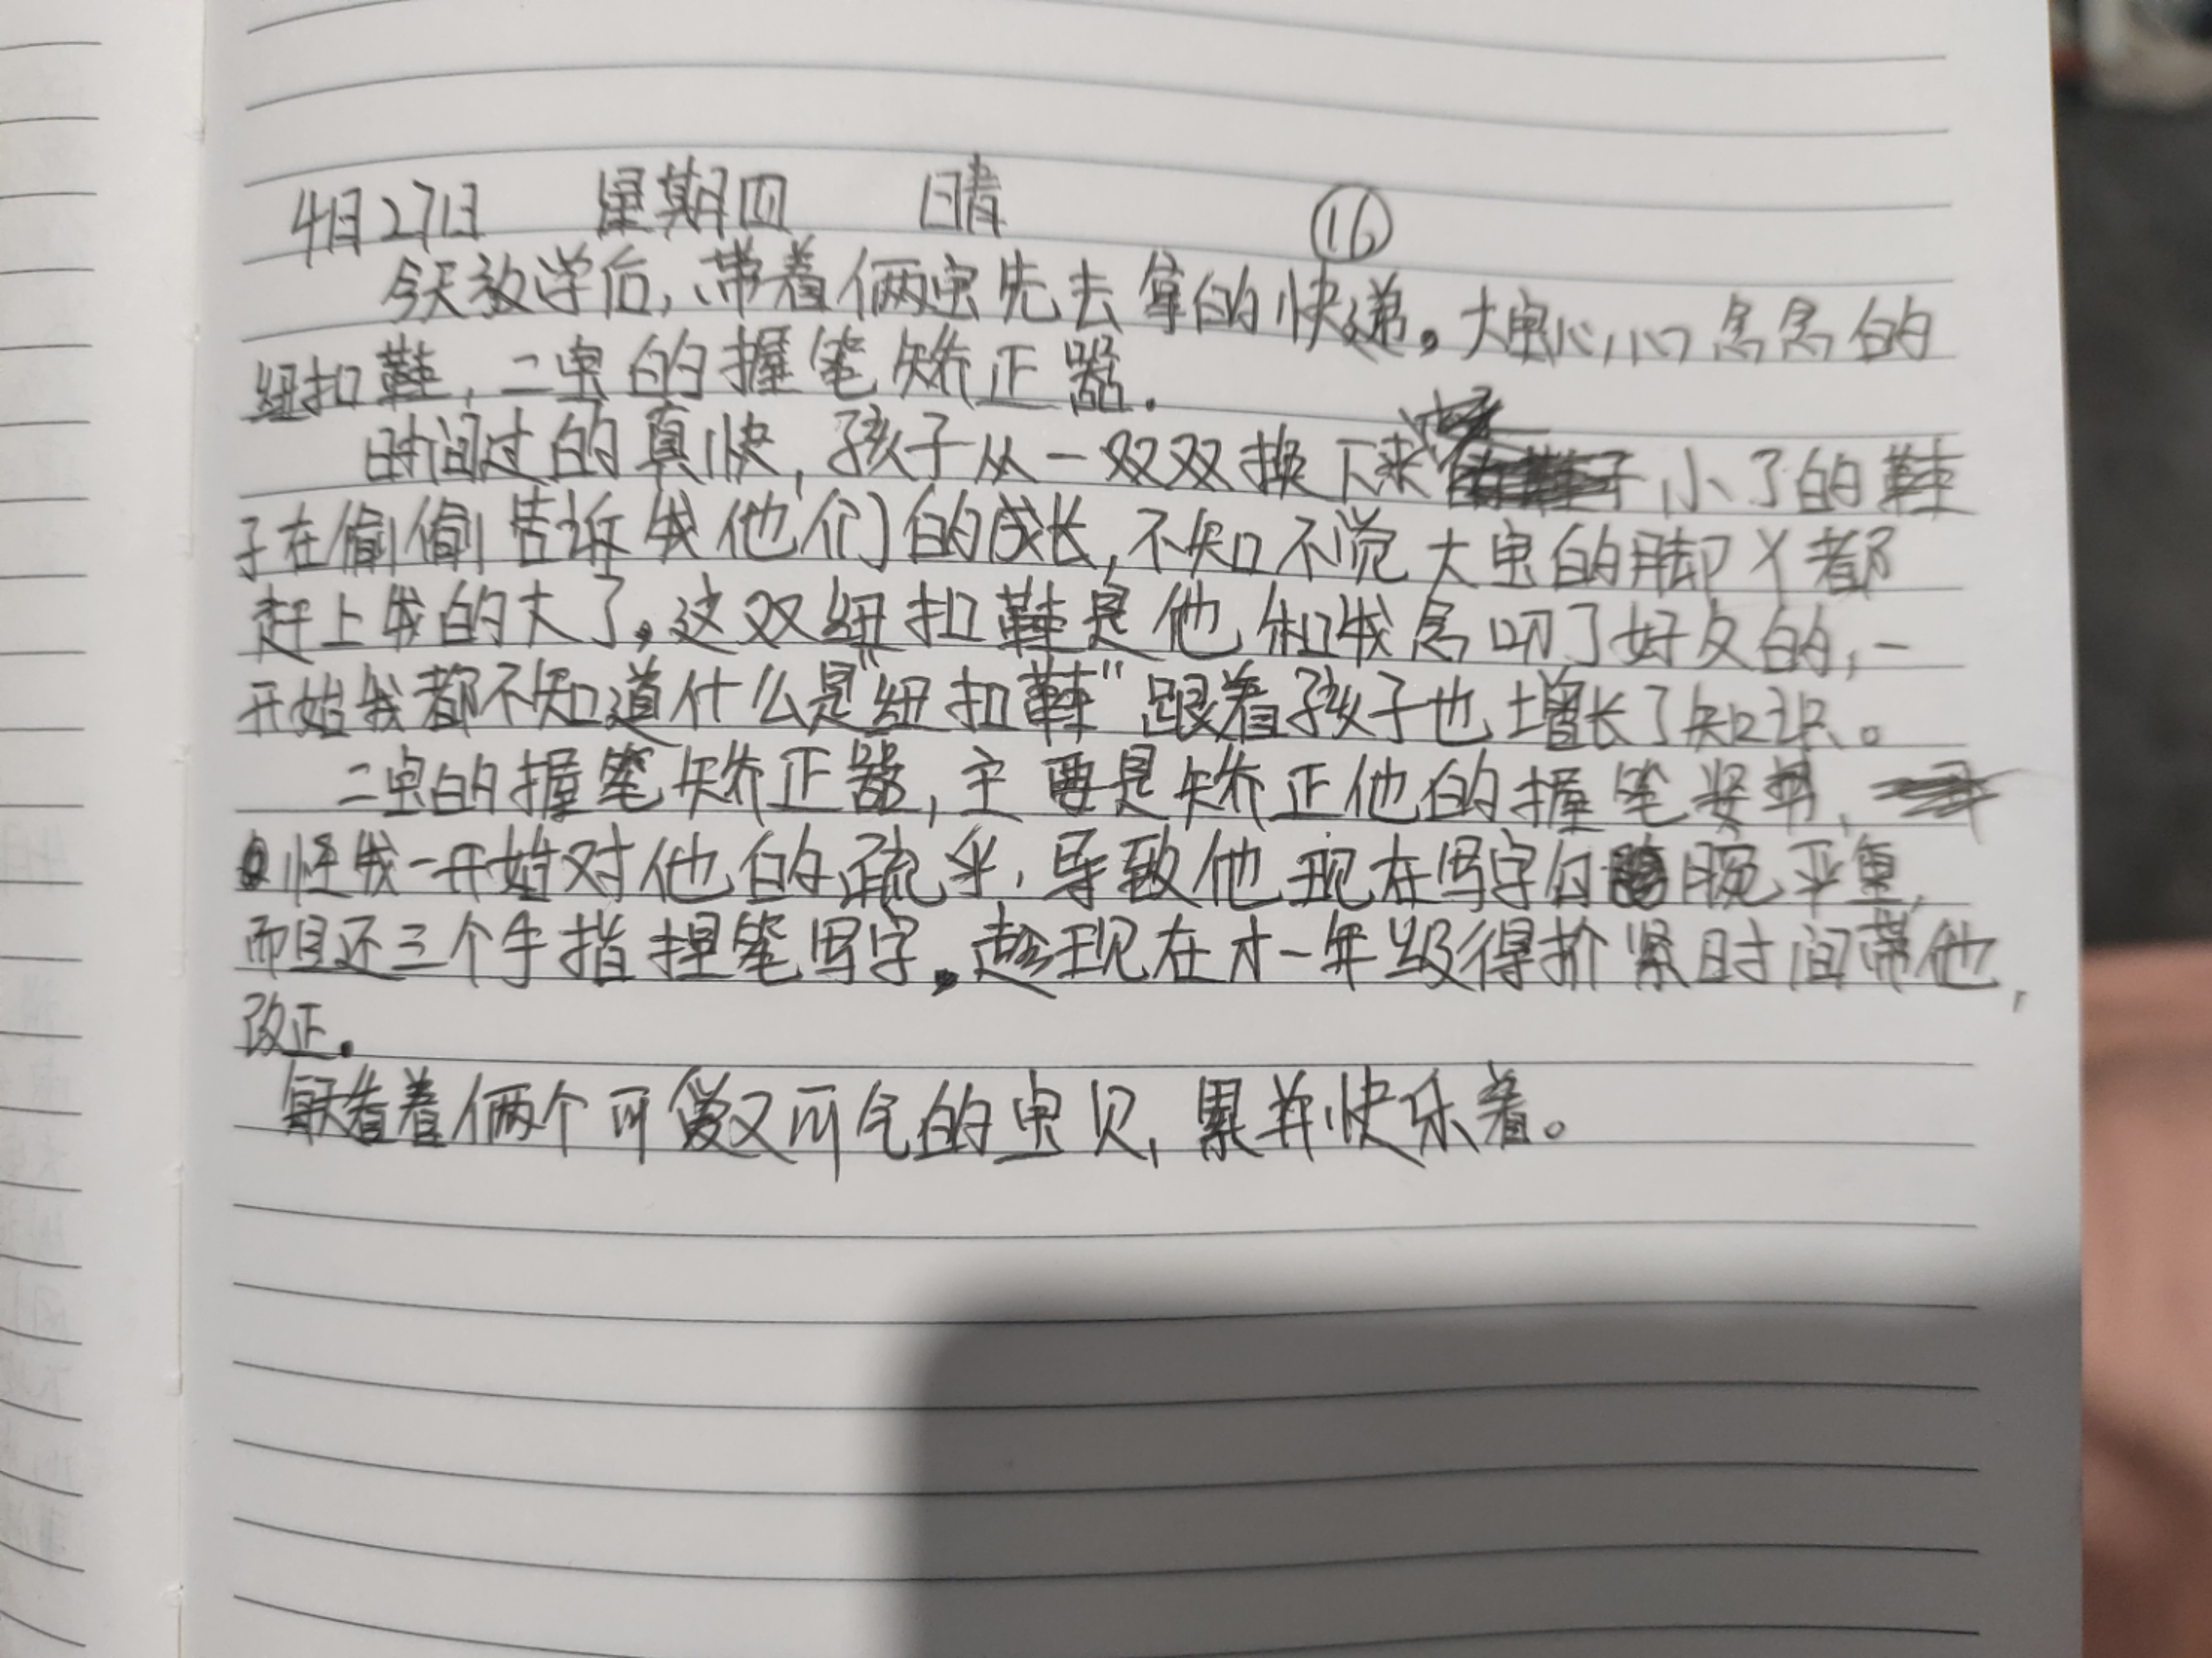 4月27日 星期四 晴 ⑯
今天放学后,带着俩虫先去拿的快递。大虫心心念念的
纽扣鞋,二虫的握笔矫正器.
时间过的真快,孩子从一双双换下来小了的鞋
子在偷偷告诉我他们的成长,不知不觉大虫的脚丫都
赶上我的大了。这双纽扣鞋是他和我念叨了好久的,一
开始我都不知道什么是"纽扣鞋"跟着孩子也增长了知识。
二虫的握笔矫正器,主要是矫正他的握笔姿势,
怪我一开始对他的疏乎,导致他现在写字勾腕严重,
而且还三个手指捏笔写字。趁现在才一年级得抓紧时间带他,
改正.
每天看着俩个可爱又可气的虫贝,累并快乐着。